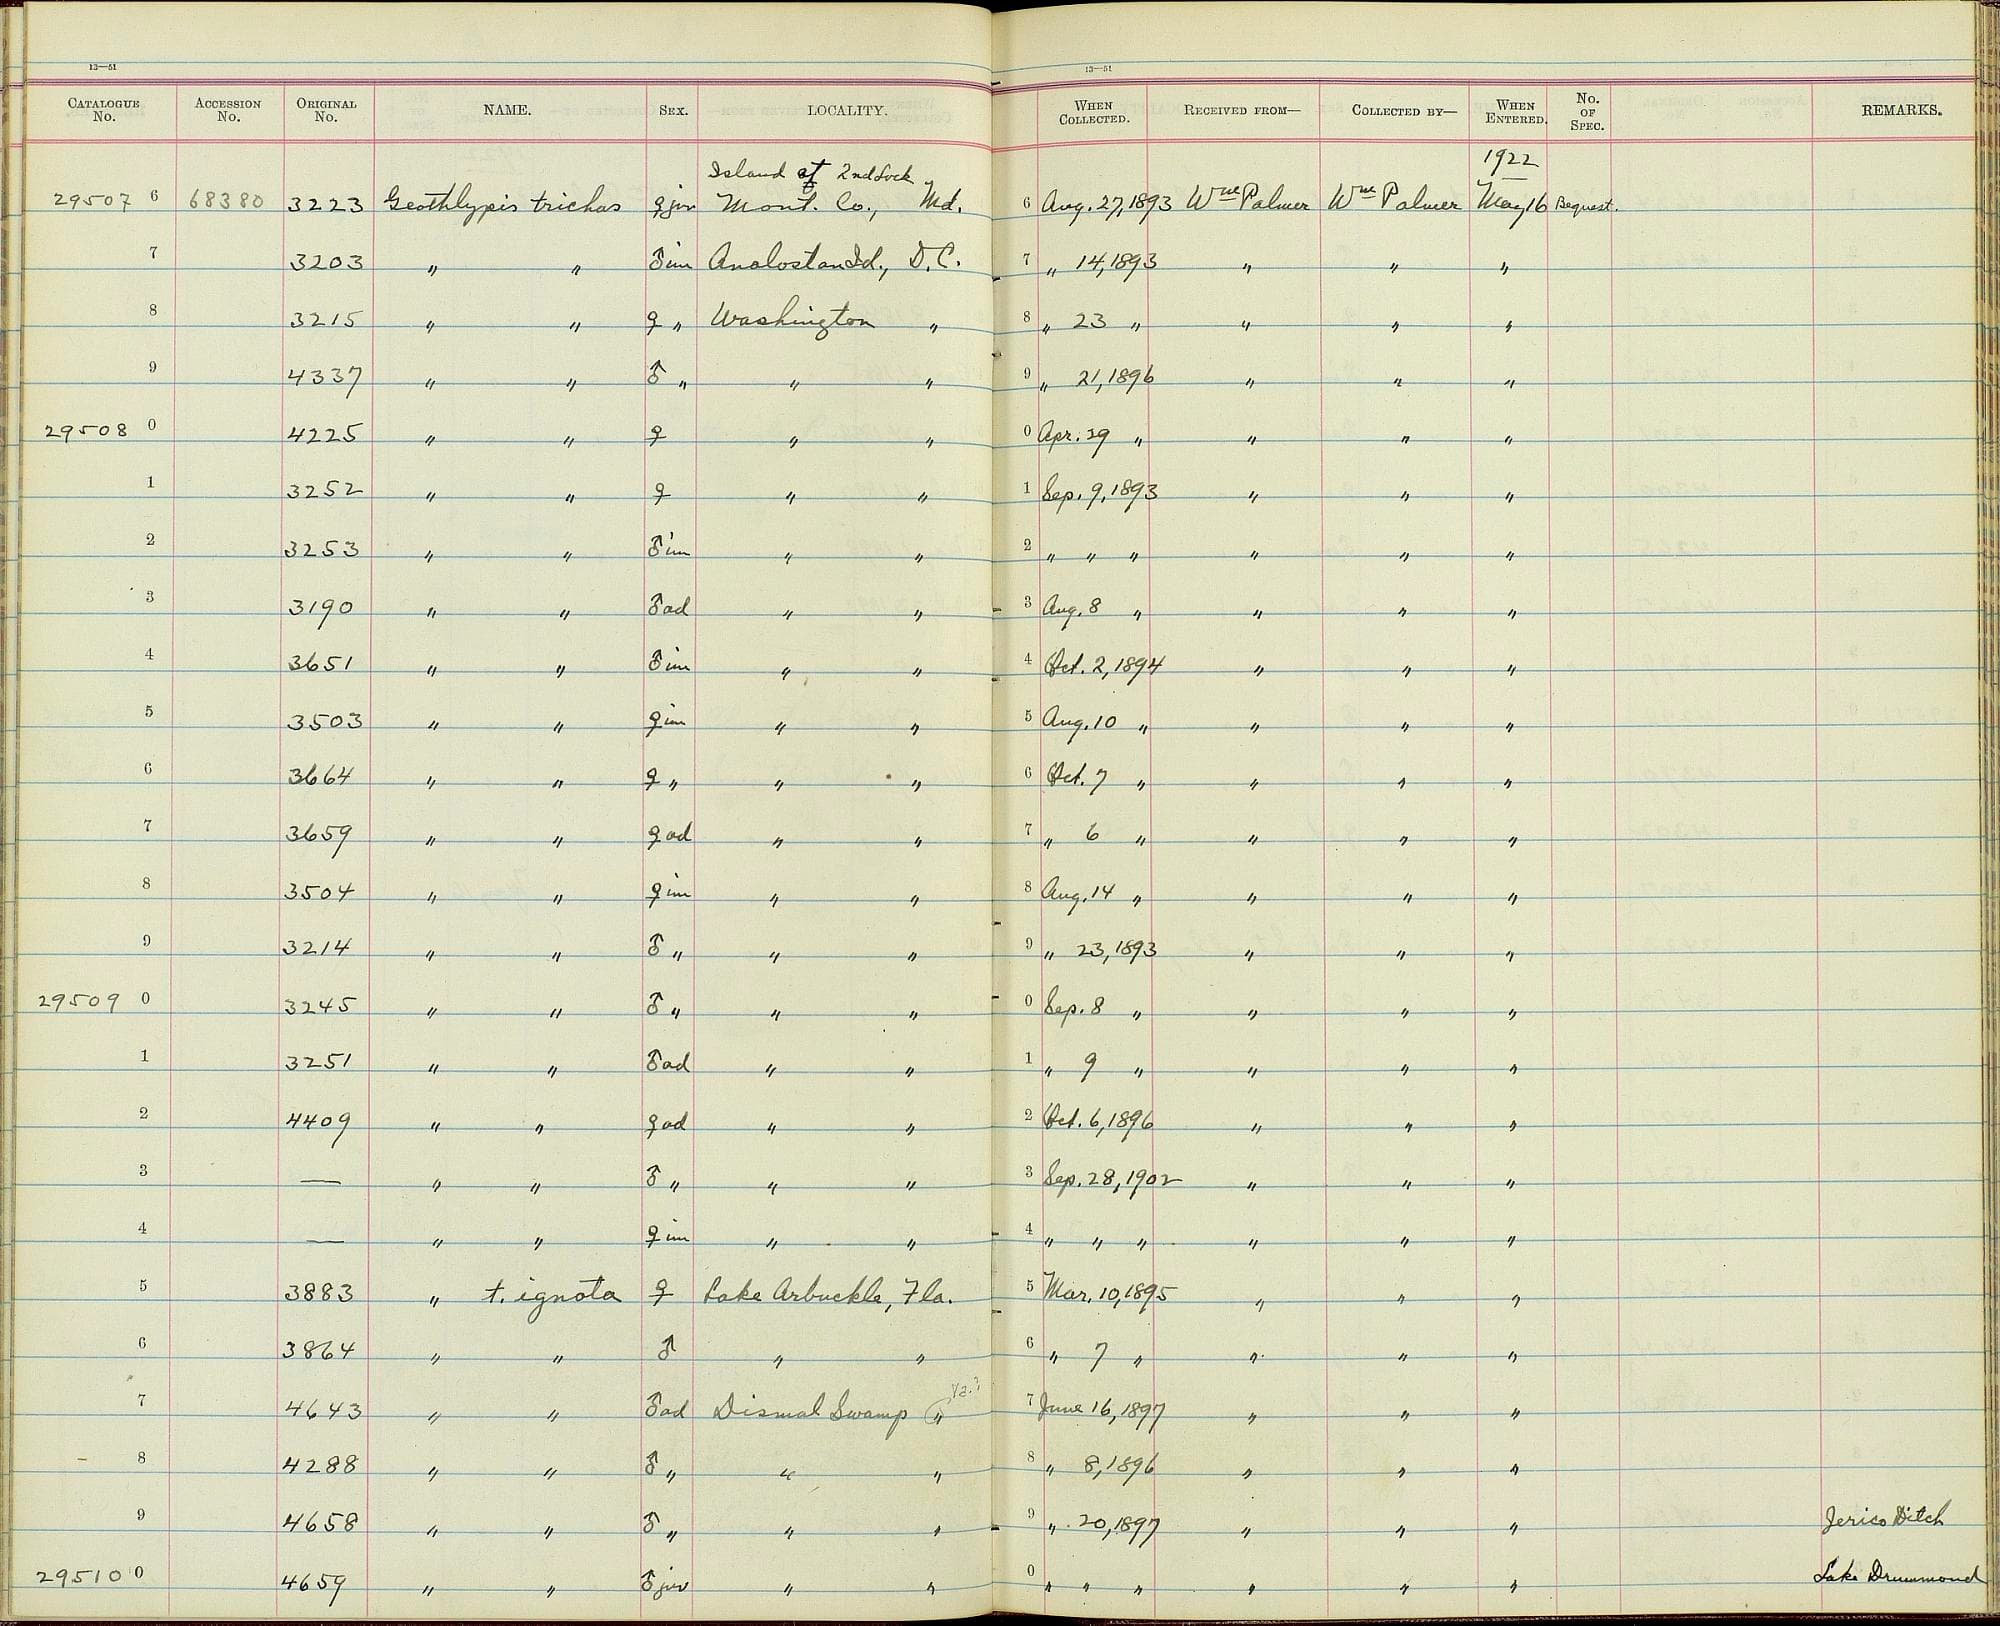 13—51 13—51
CATALOGUE No. ACCESSION No. ORIGINAL No. NAME. SEX. LOCALITY. WHEN COLLECTED. RECEIVED FROM— COLLECTED BY— WHEN ENTERED. No. OF SPEC. REMARKS.
Island at 2nd Lock 1922
29507 6 68380 3223 Geothlypis trichas ♀ juv Mont. Co., Md. 6 Aug. 27, 1893 Wm Palmer Wm Palmer May 16 Bequest.
7 3203 " " ♂ im Analostan Id., D.C. 7 " 14, 1893 " " "
8 3215 " " ♀ " Washington " 8 " 23 " " " "
9 4337 " " ♂ " " " 9 " 21, 1896 " " "
29508 0 4225 " " ♀ " " 0 Apr. 29 " " " "
1 3252 " " ♀ " " 1 Sep. 9, 1893 " " "
2 3253 " " ♂ im " " 2 " " " " " "
3 3190 " " ♂ ad " " 3 Aug. 8 " " " "
4 3651 " " ♂ im " " 4 Oct. 2, 1894 " " "
5 3503 " " ♀ im " " 5 Aug. 10 " " " "
6 3664 " " ♀ " " " 6 Oct. 7 " " " "
7 3659 " " ♀ ad " " 7 " 6 " " " "
8 3504 " " ♀ im " " 8 Aug. 14 " " " "
9 3214 " " ♂ " " " 9 " 23, 1893 " " "
29509 0 3245 " " ♂ " " " 0 Sep. 8 " " " "
1 3251 " " ♂ ad " " 1 " 9 " " " "
2 4409 " " ♀ ad " " 2 Oct. 6, 1896 " " "
3 — " " ♂ " " " 3 Sep. 28, 1902 " " "
4 — " " ♀ im " " 4 " " " " " "
5 3883 " t. ignota ♀ Lake Arbuckle, Fla. 5 Mar. 10, 1895 " " "
6 3864 " " ♂ " " 6 " 7 " " " "
Va.?
7 4643 " " ♂ ad Dismal Swamp " 7 June 16, 1897 " " "
8 4288 " " ♂ " " " 8 " 8, 1896 " " "
9 4658 " " ♂ " " " 9 " 20, 1897 " " " Jerico Ditch
29510 0 4659 " " ♂ juv " " 0 " " " " " " Lake Drummond